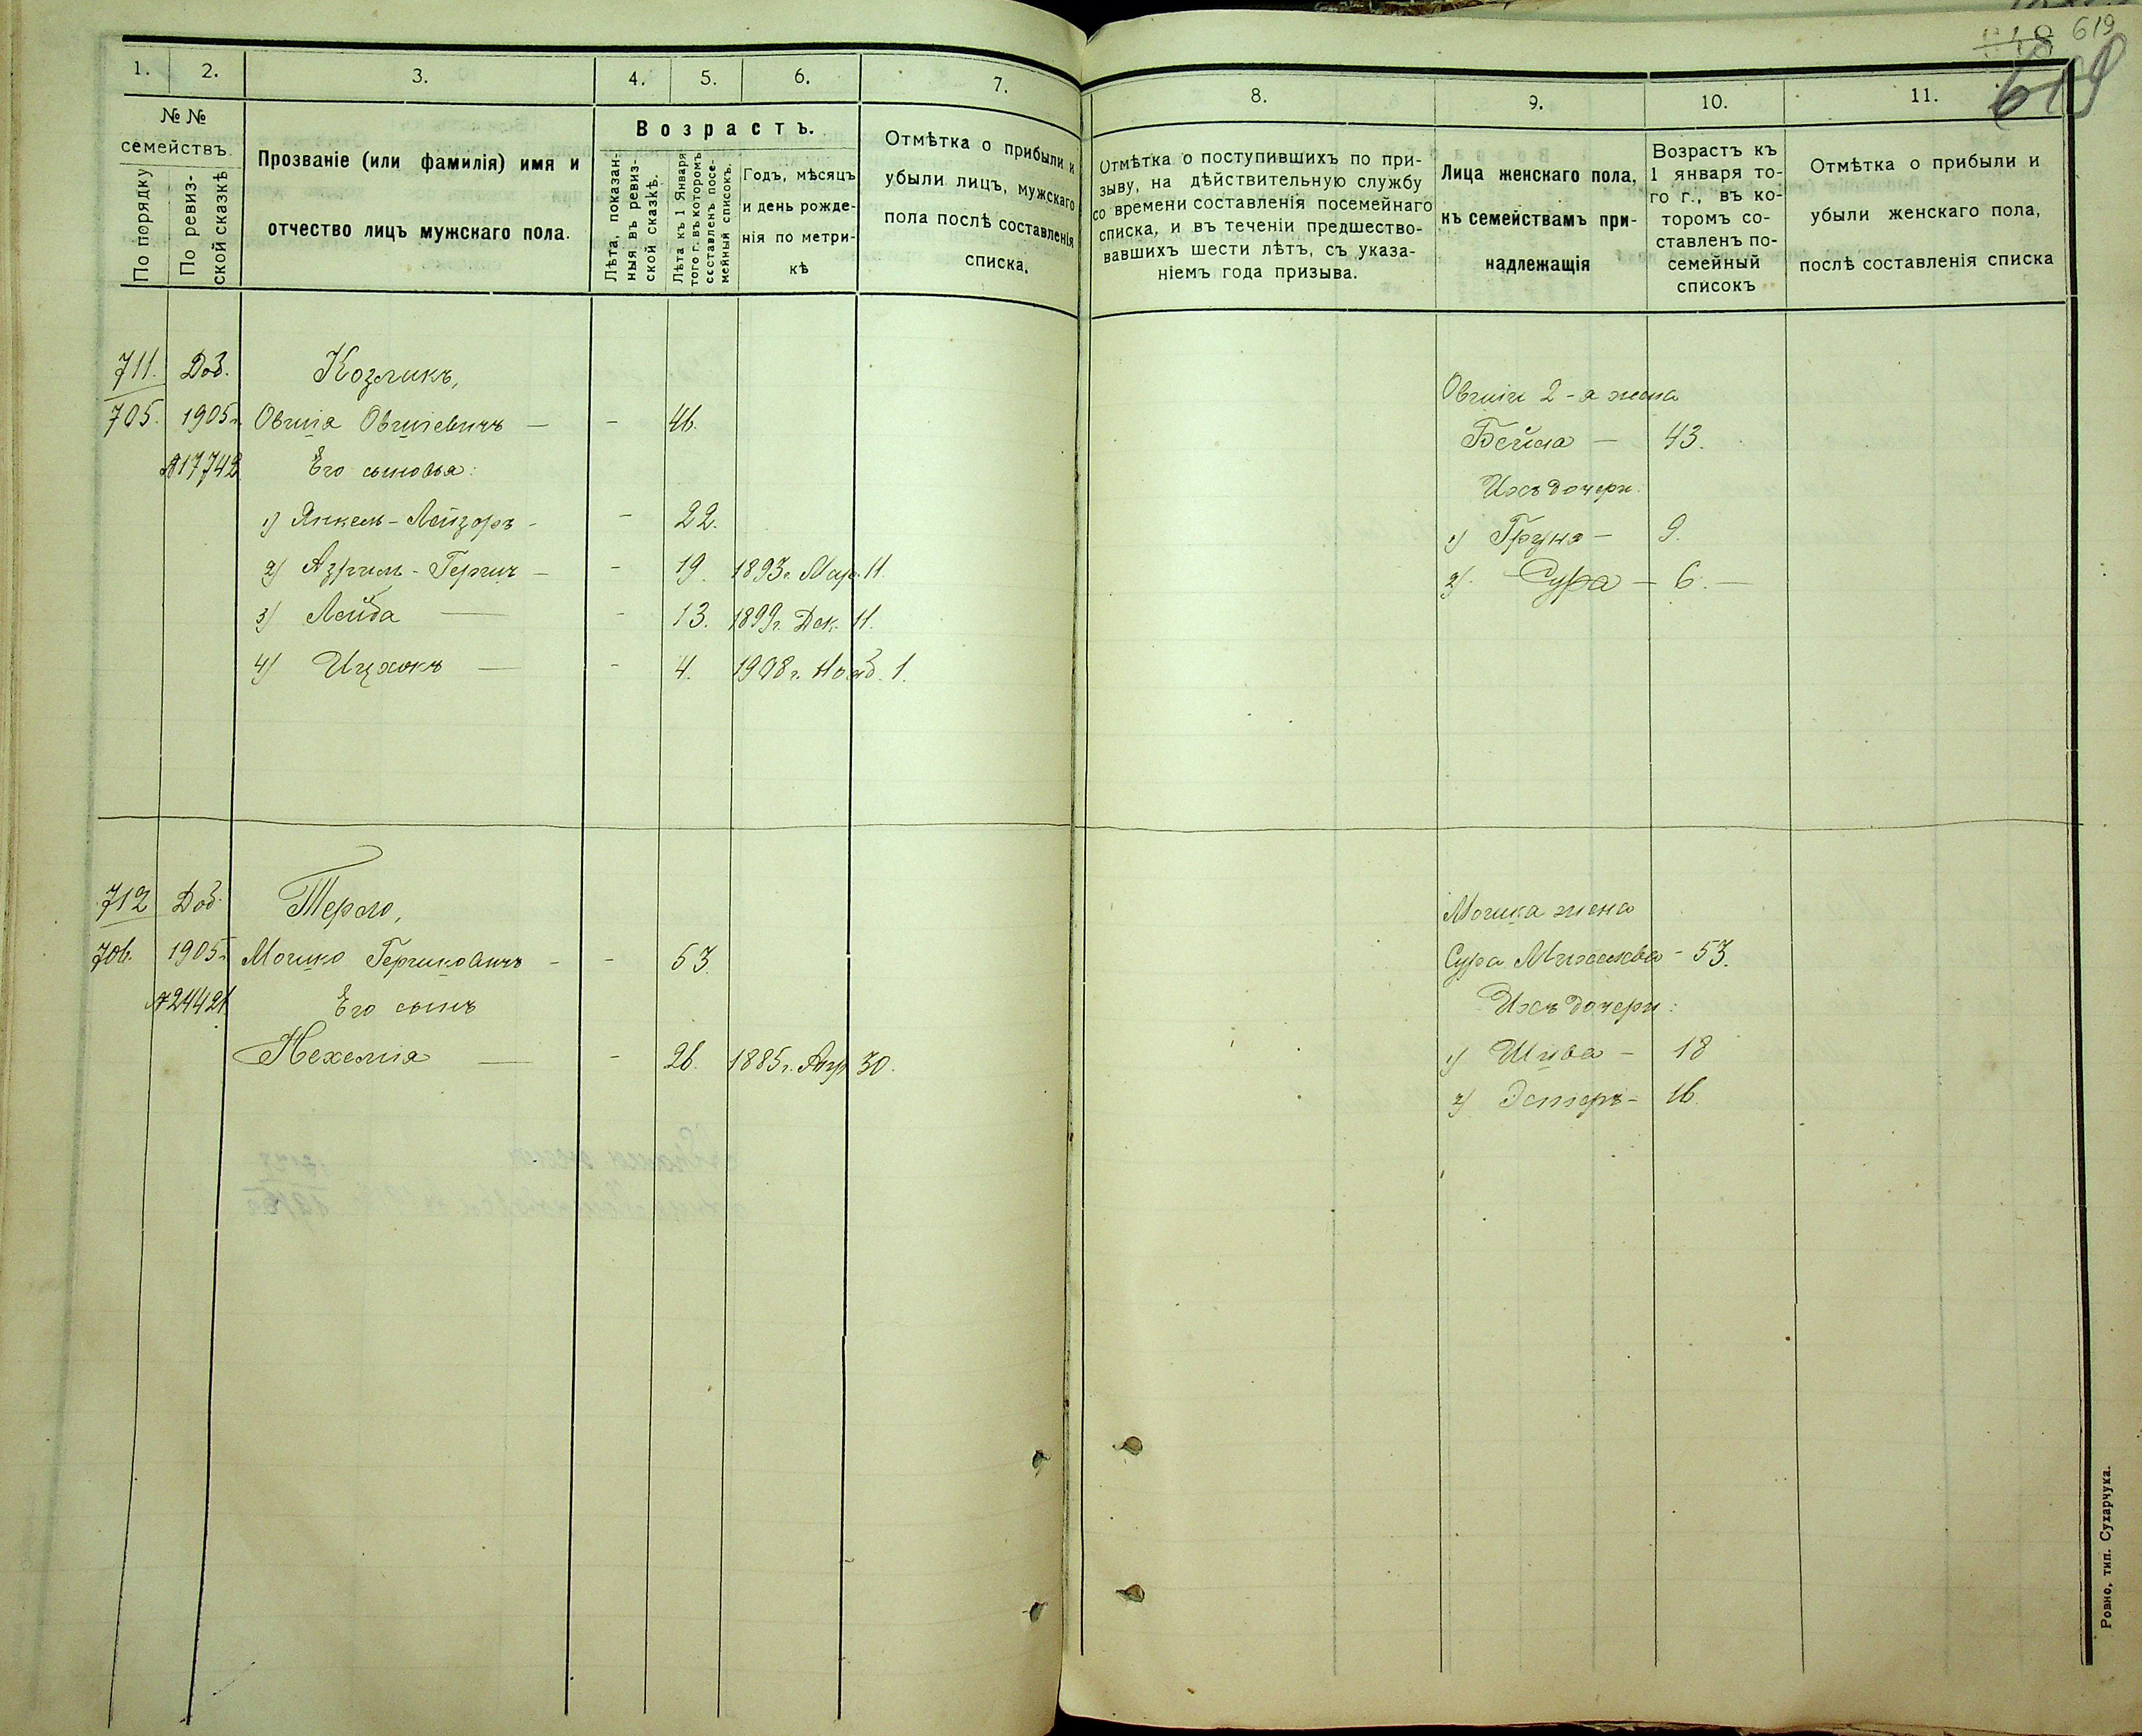 619
619
1. 2. 3. 4. 5. 6. 7.
№ №
семействъ.
По порядку
По ревиз-
ской сказкѣ
Прозваніе (или фамилія) имя и
отчество лицъ мужскаго пола.
Возрастъ.
Лѣта, показан-
ныя въ ревиз-
ской сказкѣ.
Лѣта къ 1 Января
того г. въ которомъ
составленъ посе-
мейный списокъ.
Годъ, мѣсяцъ
и день рожде-
нія по метри-
кѣ
Отмѣтка о прибыли и
убыли лицъ, мужскаго
пола послѣ составленія
списка.
711. Доб. Козликъ,
705. 1905 г. Овшія Овшіевичъ — - 46.
№17742 Его сыновья:
1) Янкель-Лейзоръ - - 22.
2) Азриль-Гершъ - - 19. 1893 г. Мар. 11.
3) Лейба — - 13. 1899 г. Дек. 11.
4) Ицхокъ — - 4. 1908 г. Нояб. 1.
712 Доб.
706. 1905 г. Мошко Гершковичъ - - 53
№24421 Его сынъ
Нехемія — - 26. 1885 г. Апр. 30.
8. 9. 10. 11.
Отмѣтка о поступившихъ по при-
зыву, на дѣйствительную службу
со времени составленія посемейнаго
списка, и въ теченіи предшество-
вавшихъ шести лѣтъ, съ указа-
ніемъ года призыва.
Лица женскаго пола,
къ семействамъ при-
надлежащія
Возрастъ къ
1 января то-
го г., въ ко-
торомъ со-
ставленъ по-
семейный
списокъ
Отмѣтка о прибыли и
убыли женскаго пола,
послѣ составленія списка
Овшіи 2-я жена
Бейла — 43.
Ихъ дочери:
1) Груня — 9.
2) Сура — 6. —
Мошка жена
Сура - 53.
Ихъ дочери:
1) Шива — 18
2) Эстеръ - 16.
Ровно, тип. Сухарчука.